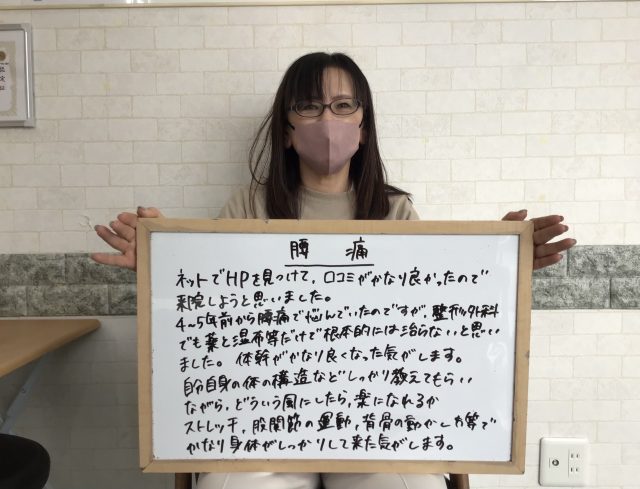 腰痛
ネットでHPを見つけて、口コミがかなり良かったので
来院しようと思いました。
4~5年前から腰痛で悩んでいたのですが、整形外科
でも薬と湿布等だけで根本的には治らないと思い
ました。体幹がかなり良くなった気がします。
自分自身の体の構造などしっかり教えてもらい
ながら、どういう風にしたら、楽になれるか
ストレッチ、股関節の運動、背骨の動かし方等で
かなり身体がしっかりして来た気がします。